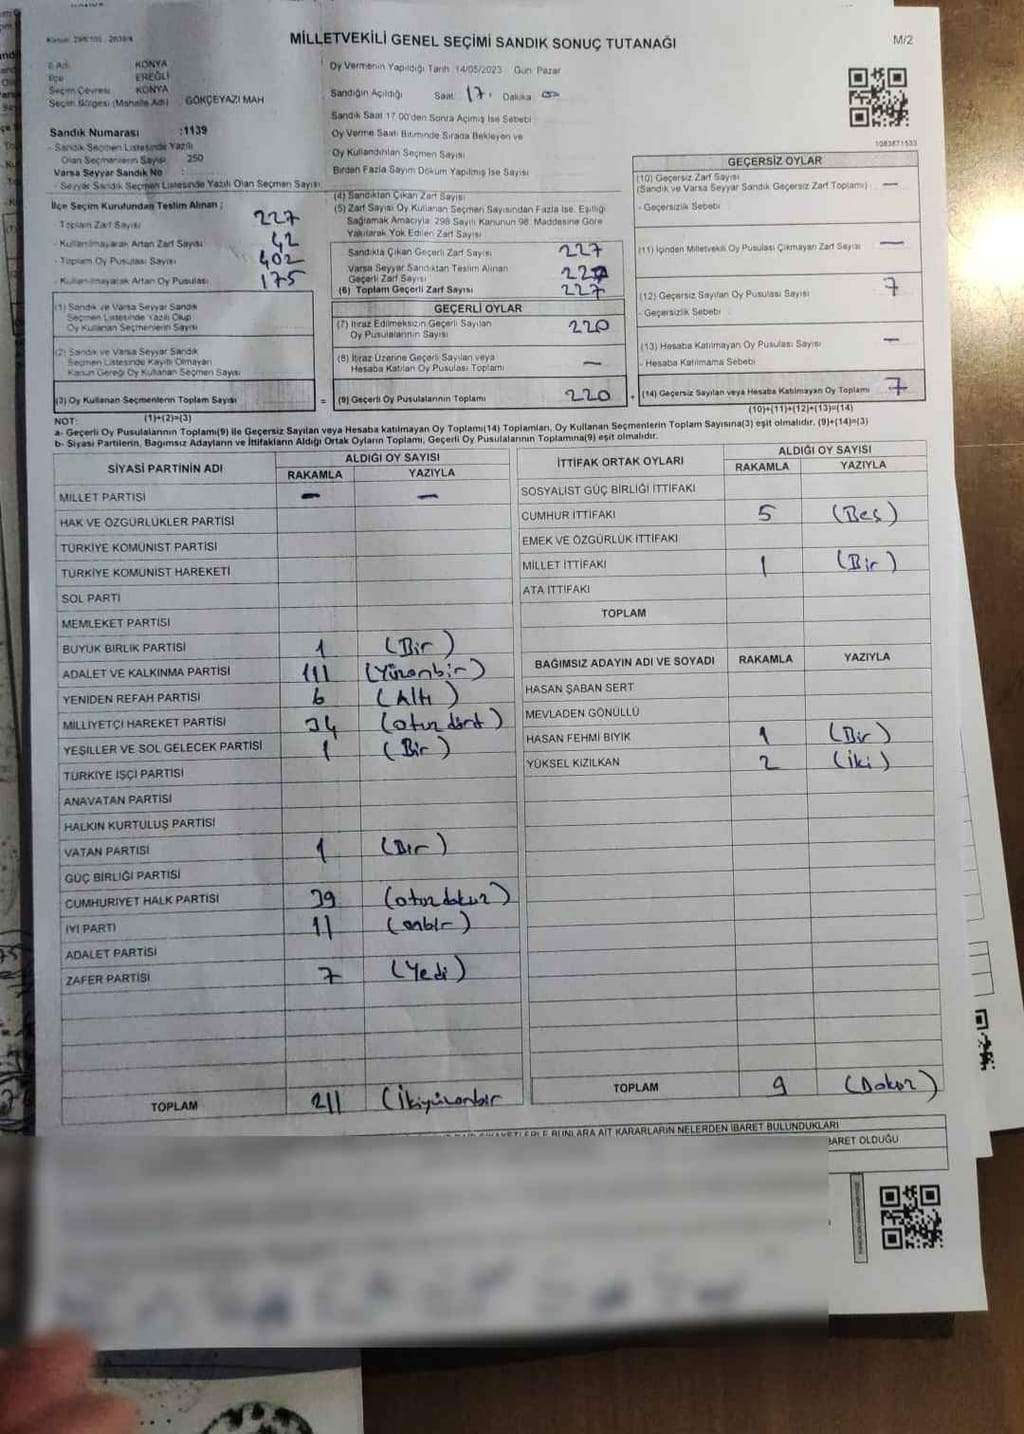 MİLLETVEKİLİ GENEL SEÇİMİ SANDIK SONUÇ TUTANAĞI
M/2
KONYA
İlçe EREĞLİ
Seçim Çevresi KONYA
Seçim Bölgesi (Mahalle Adı) GÖKÇEYAZI MAH
Sandık Numarası :1139
- Sandık Seçmen Listesinde Yazılı
Olan Seçmenlerin Sayısı 250
Varsa Seyyar Sandık No :
- Seyyar Sandık Seçmen Listesinde Yazılı Olan Seçmen Sayısı
İlçe Seçim Kurulundan Teslim Alınan ;
Toplam Zarf Sayısı 227
- Kullanılmayarak Artan Zarf Sayısı 42
- Toplam Oy Pusulası Sayısı 402
- Kullanılmayarak Artan Oy Pusulası 175
(1) Sandık ve Varsa Seyyar Sandık
Seçmen Listesinde Yazılı Olup
Oy Kullanan Seçmenlerin Sayısı
(2) Sandık ve Varsa Seyyar Sandık
Seçmen Listesinde Kayıtlı Olmayan
Kanun Gereği Oy Kullanan Seçmen Sayısı
(3) Oy Kullanan Seçmenlerin Toplam Sayısı =
(1)+(2)=(3)
Oy Vermenin Yapıldığı Tarih 14/05/2023 Gün Pazar
Sandığın Açıldığı Saat 17. Dakika 00
Sandık Saat 17.00'den Sonra Açımış İse Sebebi
Oy Verme Saati Bitiminde Sırada Bekleyen ve
Oy Kullandırılan Seçmen Sayısı
Birden Fazla Sayım Döküm Yapılmış İse Sayısı
(4) Sandıktan Çıkan Zarf Sayısı
(5) Zarf Sayısı Oy Kullanan Seçmen Sayısından Fazla İse, Eşitliği
Sağlamak Amacıyla 298 Sayılı Kanunun 98. Maddesine Göre
Yakılarak Yok Edilen Zarf Sayısı
Sandıkta Çıkan Geçerli Zarf Sayısı 227
Varsa Seyyar Sandıktan Teslim Alınan
Geçerli Zarf Sayısı 227
(6) Toplam Geçerli Zarf Sayısı 227
GEÇERLİ OYLAR
(7) İtiraz Edilmeksizin Geçerli Sayılan
Oy Pusulalarının Sayısı 220
(8) İtiraz Üzerine Geçerli Sayılan veya
Hesaba Katılan Oy Pusulası Toplamı —
(9) Geçerli Oy Pusulalarının Toplamı 220 +
1083871533
GEÇERSİZ OYLAR
(10) Geçersiz Zarf Sayısı
(Sandık ve Varsa Seyyar Sandık Geçersiz Zarf Toplamı) —
- Geçersizlik Sebebi
(11) İçinden Milletvekili Oy Pusulası Çıkmayan Zarf Sayısı —
(12) Geçersiz Sayılan Oy Pusulası Sayısı 7
- Geçersizlik Sebebi
(13) Hesaba Katılmayan Oy Pusulası Sayısı —
- Hesaba Katılmama Sebebi
(14) Geçersiz Sayılan veya Hesaba Katılmayan Oy Toplamı 7
(10)+(11)+(12)+(13)=(14)
NOT:
a- Geçerli Oy Pusulaları Toplamı(9) ile Geçersiz Sayılan veya Hesaba katılmayan Oy Toplamı(14) Toplamları, Oy Kullanan Seçmenlerin Toplam Sayısına(3) eşit olmalıdır. (9)+(14)=(3)
b- Siyasi Partilerin, Bağımsız Adayların ve İttifakların Aldığı Ortak Oyların Toplamı, Geçerli Oy Pusulalarının Toplamına(9) eşit olmalıdır.
SİYASİ PARTİNİN ADI ALDIĞI OY SAYISI
RAKAMLA YAZIYLA
MİLLET PARTİSİ — —
HAK VE ÖZGÜRLÜKLER PARTİSİ
TÜRKİYE KOMÜNİST PARTİSİ
TÜRKİYE KOMÜNİST HAREKETİ
SOL PARTİ
MEMLEKET PARTİSİ
BÜYÜK BİRLİK PARTİSİ 1 (Bir)
ADALET VE KALKINMA PARTİSİ 111 (Yüzonbir)
YENİDEN REFAH PARTİSİ 6 (Altı)
MİLLİYETÇİ HAREKET PARTİSİ 34 (otuzdört)
YEŞİLLER VE SOL GELECEK PARTİSİ 1 (Bir)
TÜRKİYE İŞÇİ PARTİSİ
ANAVATAN PARTİSİ
HALKIN KURTULUŞ PARTİSİ
VATAN PARTİSİ 1 (Bir)
GÜÇ BİRLİĞİ PARTİSİ
CUMHURİYET HALK PARTİSİ 39 (otuzdokuz)
İYİ PARTİ 11 (onbir)
ADALET PARTİSİ
ZAFER PARTİSİ 7 (Yedi)
TOPLAM 211 (İkiyüzonbir
İTTİFAK ORTAK OYLARI ALDIĞI OY SAYISI
RAKAMLA YAZIYLA
SOSYALİST GÜÇ BİRLİĞİ İTTİFAKI
CUMHUR İTTİFAKI 5 (Beş)
EMEK VE ÖZGÜRLÜK İTTİFAKI
MİLLET İTTİFAKI 1 (Bir)
ATA İTTİFAKI
TOPLAM
BAĞIMSIZ ADAYIN ADI VE SOYADI RAKAMLA YAZIYLA
HASAN ŞABAN SERT
MEVLADEN GÖNÜLLÜ
HASAN FEHMİ BIYIK 1 (Bir)
YÜKSEL KIZILKAN 2 (İki)
TOPLAM 9 (Dokuz)
BUNLARA AİT KARARLARIN NELERDEN İBARET BULUNDUKLARI
BARET OLDUĞU